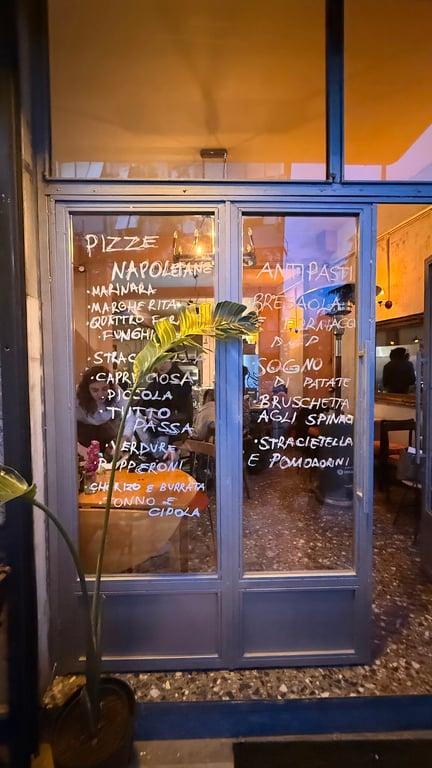 PIZZE
NAPOLETANE
• MARINARA
• MARGHERITA
• QUATTRO
FUNGHI
CAPRICCIOSA
PICCOLA
• TUTTO
PASSA
• VERDURE
PEPPERONI
CHORIZO E BURRATA
• TONNO E
CIPOLA
ANTIPASTI
BRESAOLA
E FORMAGGI
D.O.P
SOGNO
DI PATATE
• BRUSCHETTA
AGLI SPINACI
• STRACIETELLA
E POMODORINI